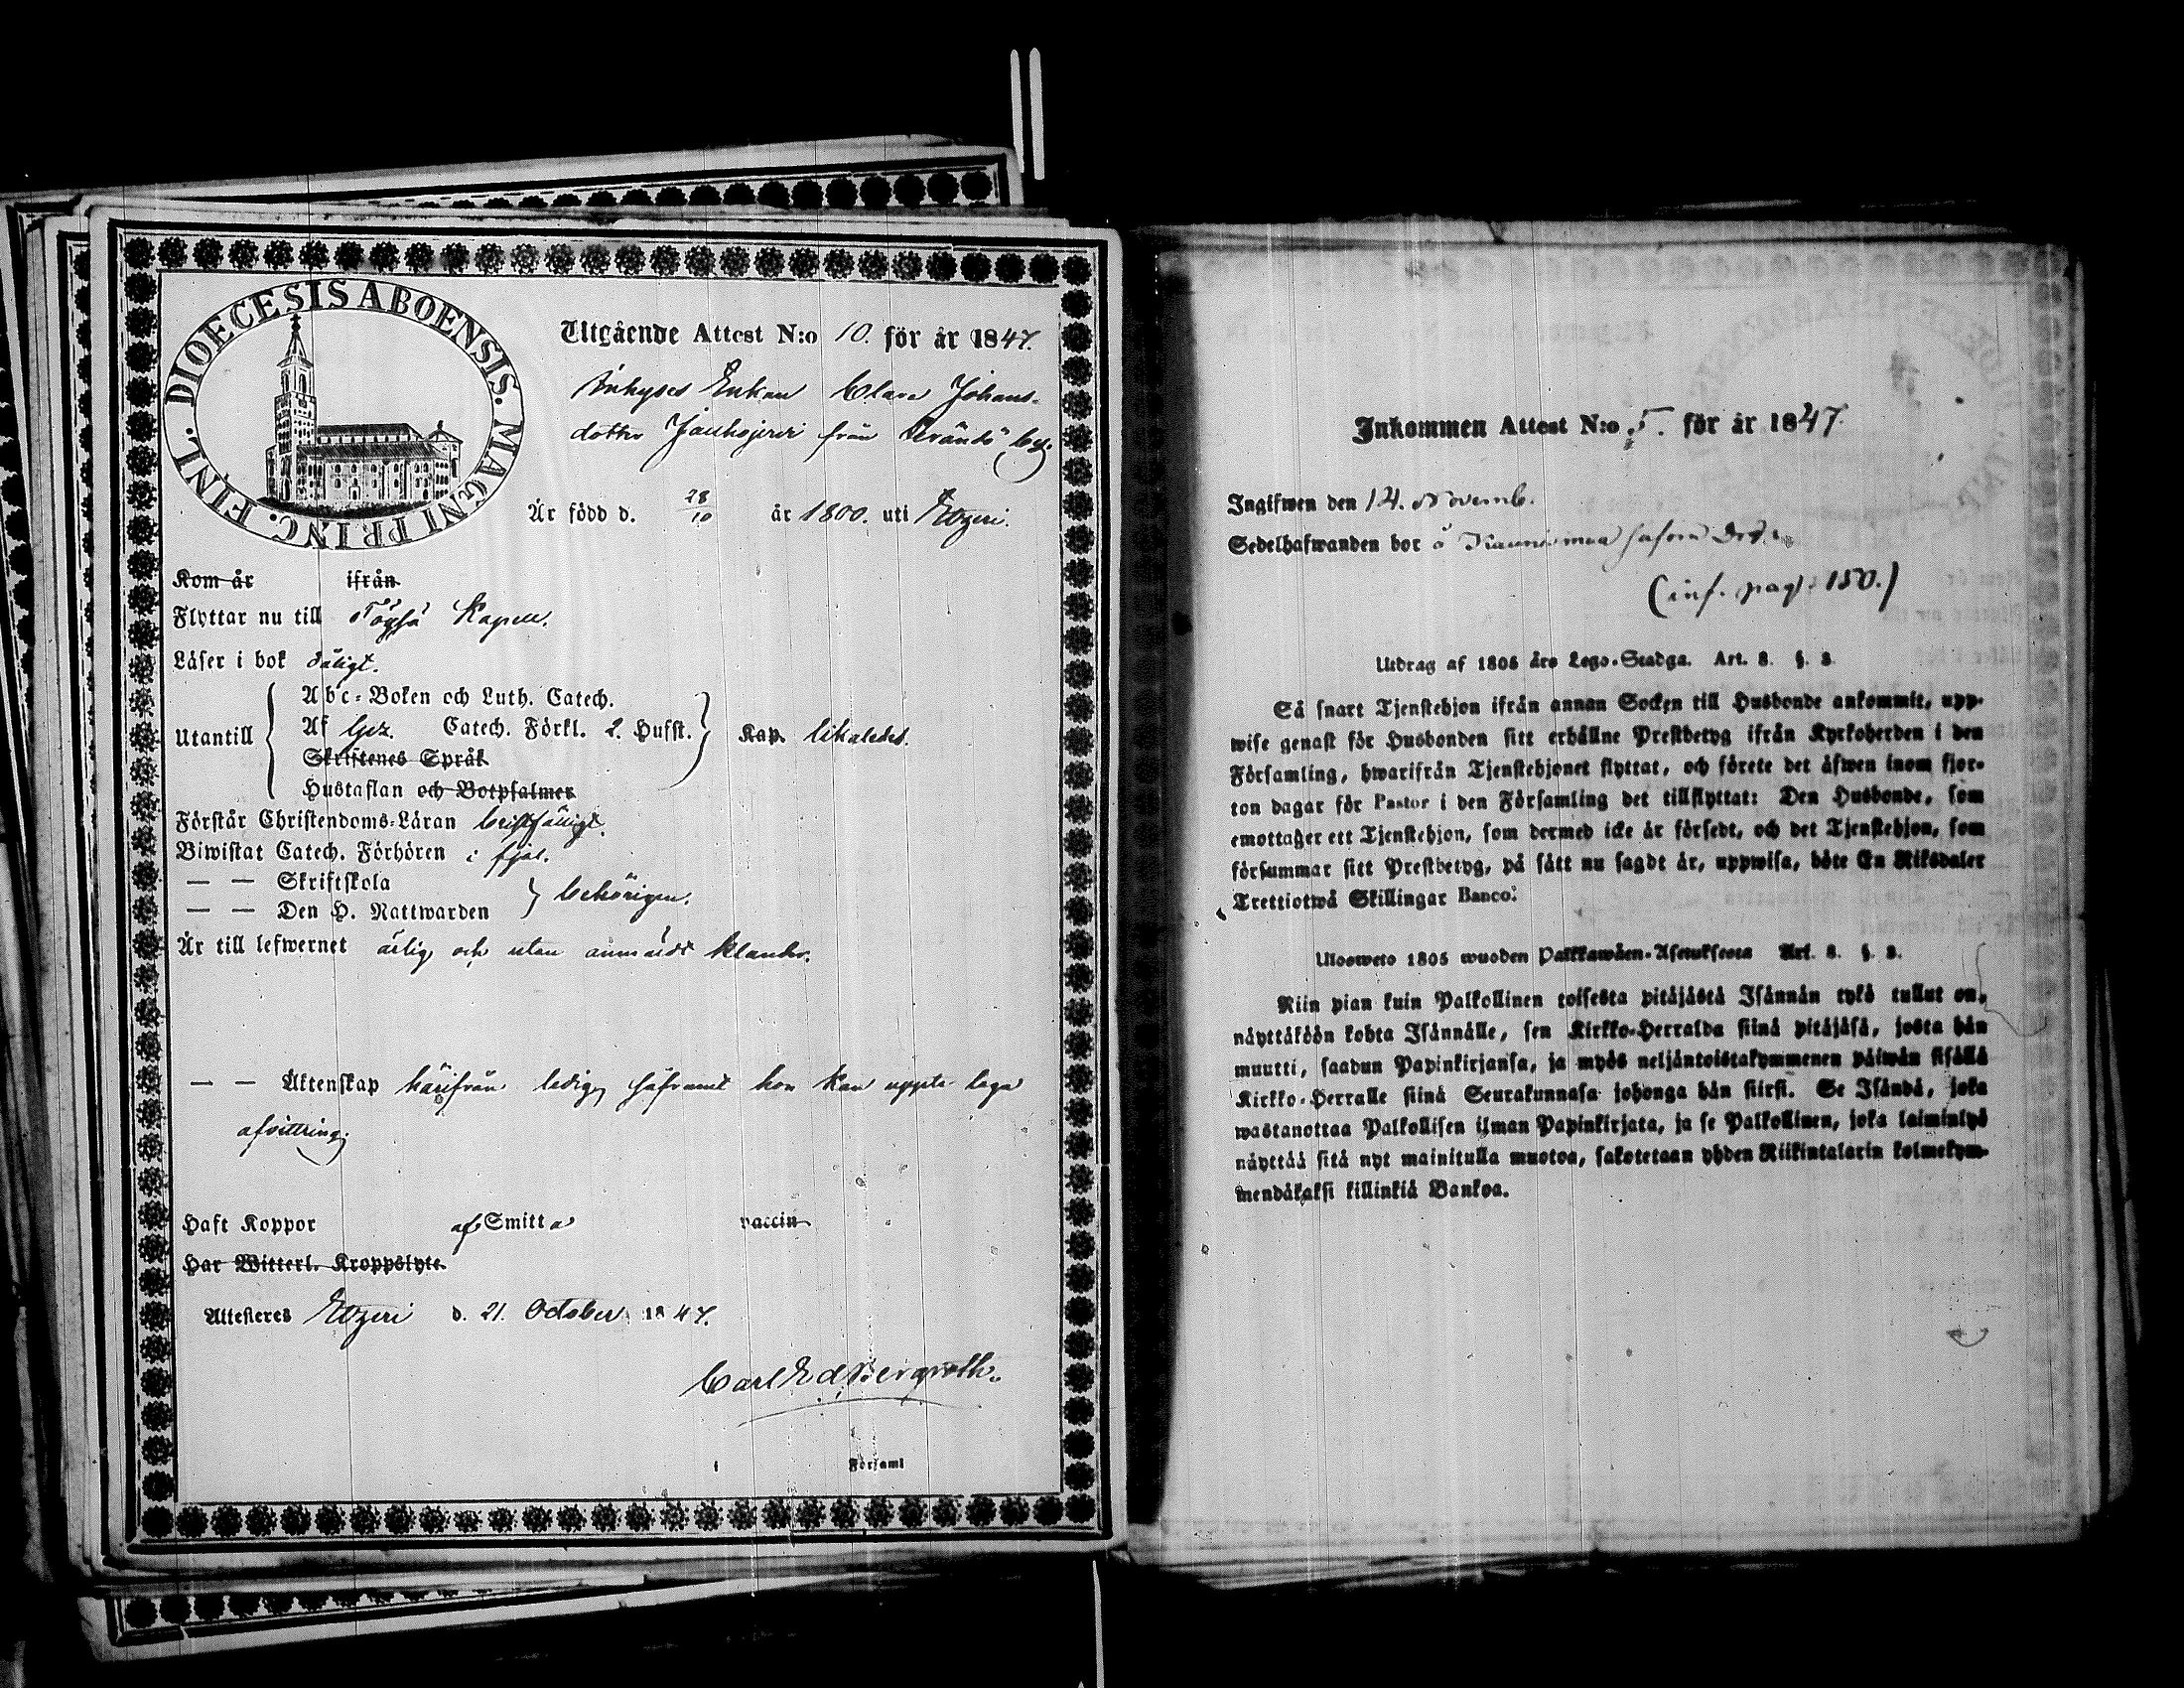 DIOECESIS ABOENSIS. MAGNI PRINC. FINL.
Utgående Attest N:o 10. för år 1847.
Inhyses Enkan Clara Johans-
dotter från
Är född d. 28/10 år 1800. uti Etzeri.
Kom år ifrån
Flyttar nu till Töysä Kapell.
Läser i bok dåligt.
Utantill
Abc-Boken och Luth. Catech.
Af Catech. Förkl. 2. Hufst. Kap. likaledes.
Skriftenes Språk
Hustaflan och Botpsalmer
Förstår Christendoms-Läran bristfälligt.
Biwistat Catech. Förhören i fjol.
— — Skriftskola
— — Den H. Nattwarden behörigen.
Är till lefwernet ärlig och utan anmäldt klander.
— — Äktenskap härifrån ledig, såframt hon kan uppte laga
afvittring.
Haft Koppor af Smitta vaccin
Har Witterl. Kroppslyte
Attesteres Etzeri d. 21. October 1847.
Carl Ed Bergroth.
i Församl
Inkommen Attest N:o 5. för år 1847.
Ingifwen den 14. Novemb.
Sedelhafwanden bor å
(inf. pag. 150.)
Utdrag af 1805 års Lego-Stadga. Art. 8. §. 3.
Så snart Tjenstehjon ifrån annan Socken till Husbonde ankommit, upp-
wise genast för Husbonden sitt erhållne Prestbetyg ifrån Kyrkoherden i den
Församling, hwarifrån Tjenstehjonet flyttat, och förete det äfwen inom fjor-
ton dagar för Pastor i den Församling det tillflyttat: Den Husbonde, som
emottager ett Tjenstehjon, som dermed icke är försedt, och det Tjenstehjon, som
försummar sitt Prestbetyg, på sätt nu sagdt är, uppwisa, böte En Riksdaler
Trettiotwå Skillingar Banco.
Ulosweto 1805 wuoden Palkkawäen-Asetuksesta Art. 8. §. 3.
Niin pian kuin Palkollinen toisesta pitäjästä Isännän tykö tullut on,
näyttäköön kohta Isännälle, sen Kirkko-Herralda siinä pitäjäsä, josta hän
muutti, saadun Papinkirjansa, ja myös neljäntoistakymmenen päiwän sisällä
Kirkko-Herralle siinä Seurakunnasa johonga hän siirsi. Se Isändä, joka
wastanottaa Palkollisen ilman Papinkirjata, ja se Palkollinen, joka laiminlyö
näyttää sitä nyt mainitulla muotoa, sakotetaan yhden Riikintalarin kolmekym-
mendäkaksi killinkiä Bankoa.